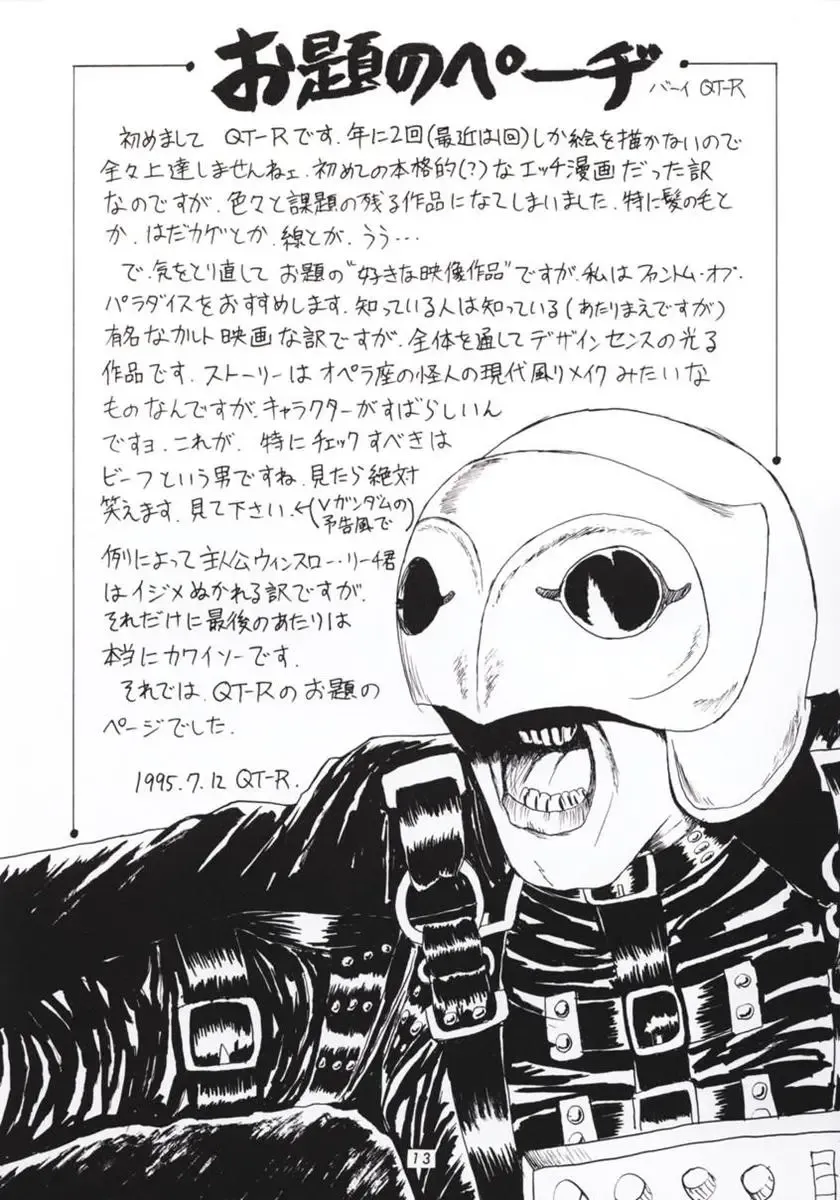 お題のペーヂ
バーイ QT-R
初めまして QT-Rです. 年に2回(最近は1回)しか絵を描かないので
全々上達しませんねェ. 初めての本格的(?)なエッチ漫画だった訳
なのですが. 色々と課題の残る作品になてしまいました. 特に髪の毛と
か. はだカゲとか. 線とか. うう…
で. 気をとり直して お題の"好きな映像作品"ですが. 私はファントム・オブ・
パラダイスをおすすめします. 知っている人は知っている(あたりまえですが)
有名なカルト映画な訳ですが. 全体を通してデザインセンスの光る
作品です. ストーリーは オペラ座の怪人の現代風リメイクみたいな
ものなんですが. キャラクターがすばらしいん
ですョ. これが. 特にチェックすべきは
ビーフという男ですね. 見たら絶対
笑えます. 見て下さい. ←(Vガンダムの
予告風で)
例によって主人公ウィンスロー・リーチ君
はイジメぬかれる訳ですが.
それだけに最後のあたりは
本当にカワイソーです.
それでは. QT-Rのお題の
ページでした.
1995.7.12 QT-R.
13